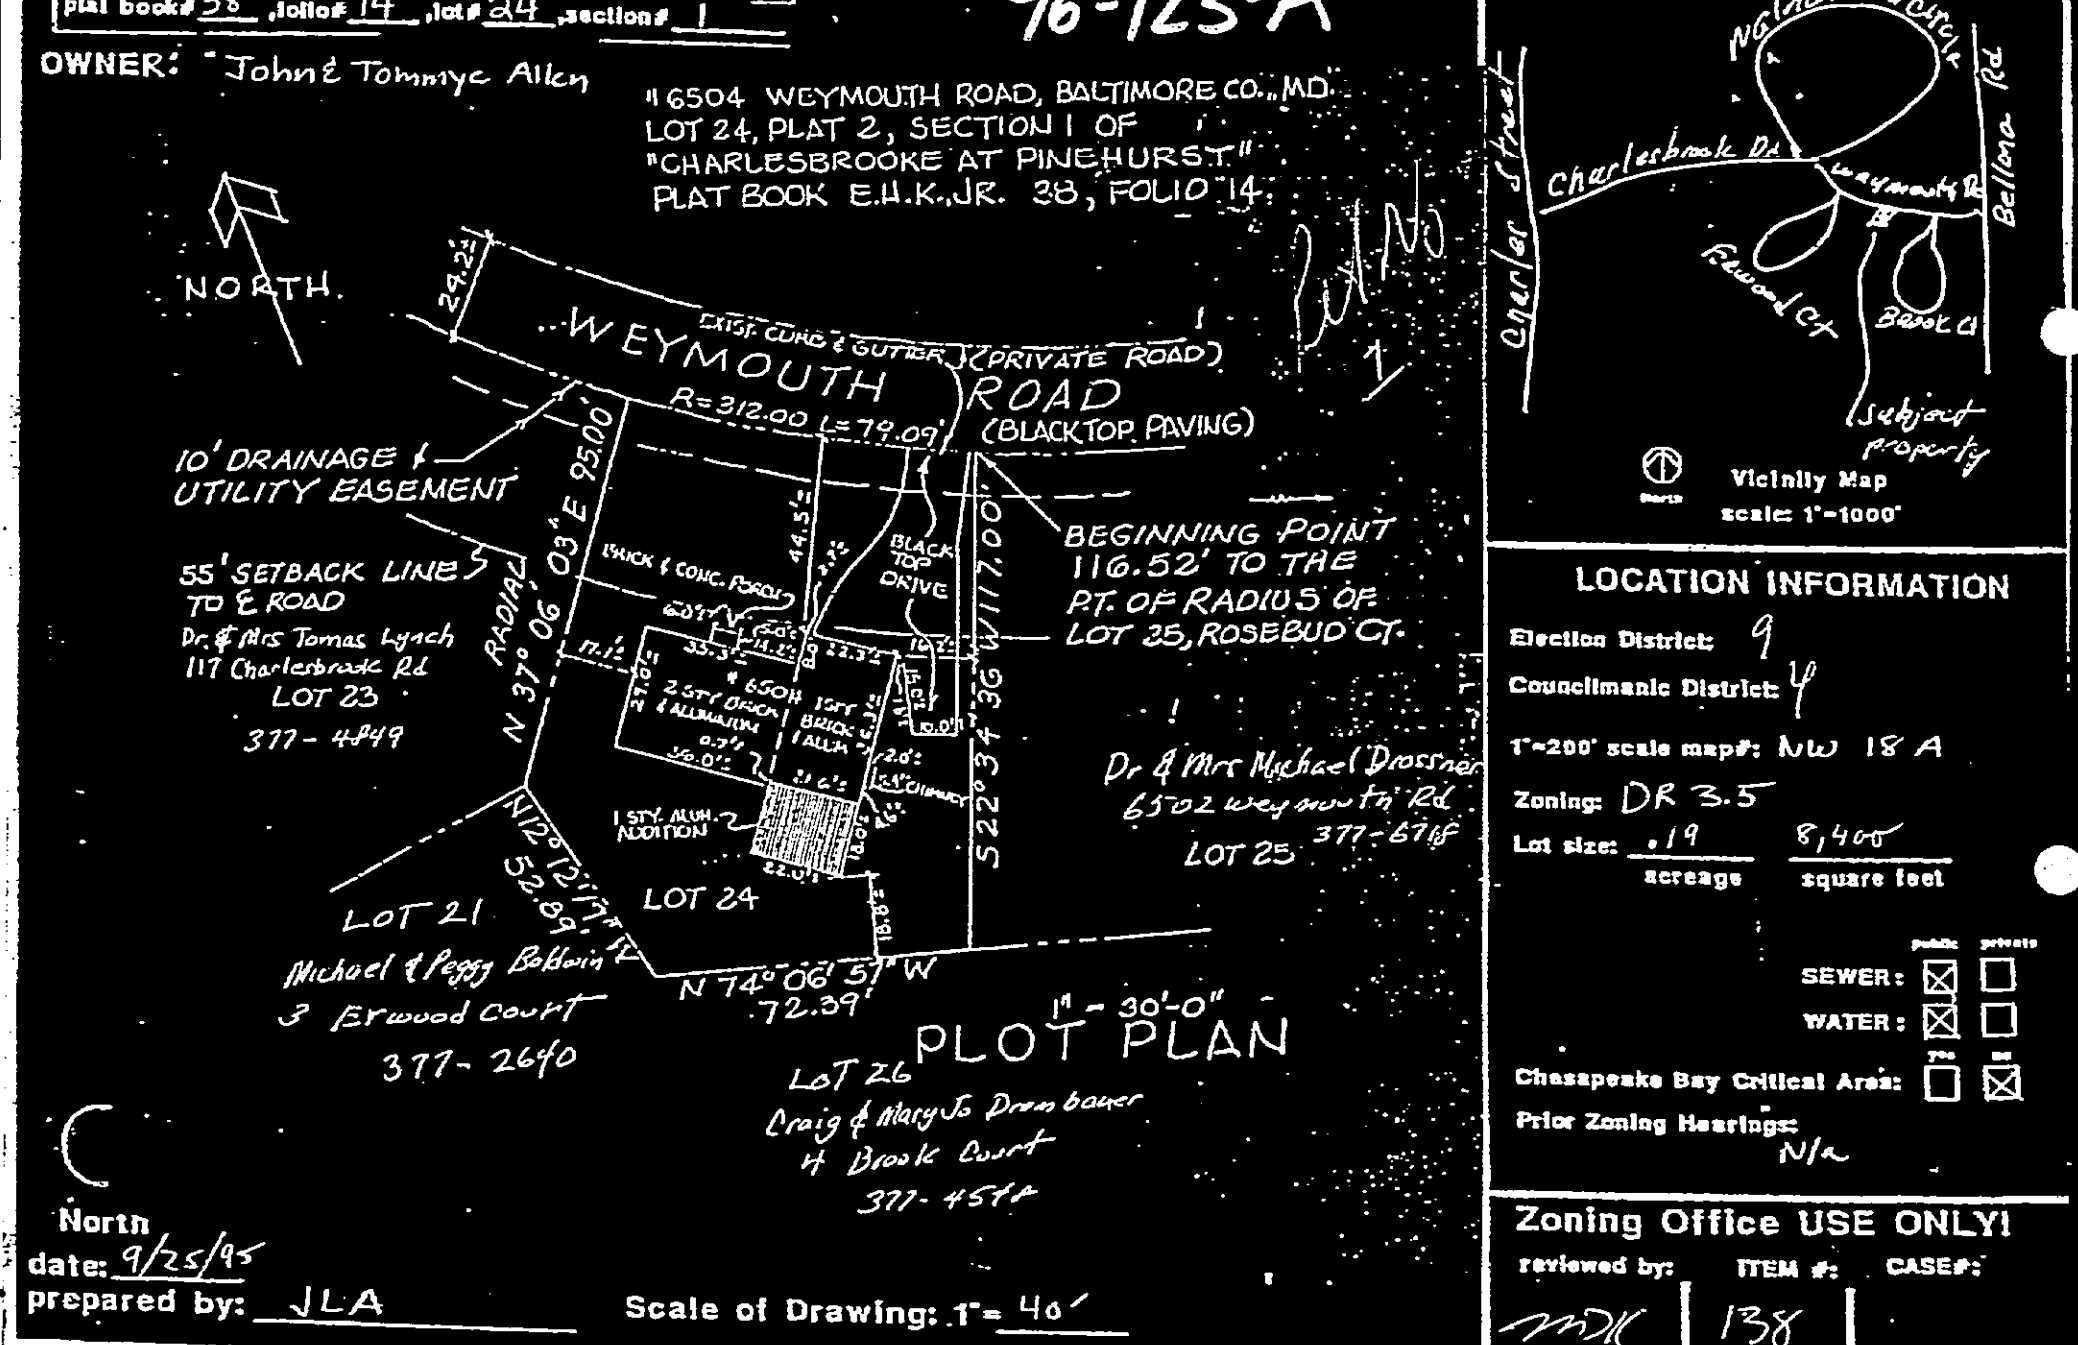 plat book# 38 ,folio# 14 ,lot# 24 ,section# 1
96-123-A
OWNER: John & Tommye Allen
#6504 WEYMOUTH ROAD, BALTIMORE CO., MD.
LOT 24, PLAT 2, SECTION 1 OF
"CHARLESBROOKE AT PINEHURST"
PLAT BOOK E.H.K.,JR. 38, FOLIO 14
NORTH
24.2'±
EXIST. CURB & GUTTER
WEYMOUTH ROAD
(PRIVATE ROAD)
(BLACKTOP PAVING)
R=312.00 L=79.09'
10' DRAINAGE &
UTILITY EASEMENT
55' SETBACK LINE
TO ℄ ROAD
Dr. & Mrs Tomas Lynch
117 Charlesbrook Rd
LOT 23
377-4849
RADIAL
N 37° 06' 03" E 95.00'
44.5'±
BRICK & CONC. PORCH
BLACK
TOP
DRIVE
BEGINNING POINT
116.52' TO THE
P.T. OF RADIUS OF
LOT 25, ROSEBUD CT.
S 22° 34' 36" W 117.00'
17.1'±
22.3'±
# 6504
2 STY BRICK
& ALUMINUM
1 STY
BRICK &
ALUM
10.0'±
2.0'±
CHIMNEY
21.6'±
1 STY. ALUM.
ADDITION
22.0'±
18.8'±
LOT 24
Dr & Mrs Michael Drossner
6502 Weymouth Rd
377-6718
LOT 25
N 12° 12' 17" W
52.89'
LOT 21
Michael & Peggy Baldwin
3 Erwood Court
377-2640
N 74° 06' 57" W
72.39'
1" = 30'-0"
PLOT PLAN
LOT 26
Craig & Mary Jo Drombauer
4 Brook Court
North
date: 9/25/95
prepared by: JLA
Scale of Drawing: 1"= 40'
Circle
Charles Street
Charlesbrook Rd
Weymouth Rd
Bellona Rd
Erwood Ct
Brook Ct
subject
property
North
Vicinity Map
scale: 1"=1000'
LOCATION INFORMATION
Election District: 9
Councilmanic District: 4
1"=200' scale map#: NW 18 A
Zoning: DR 3.5
Lot size: .19 8,400
acreage square feet
public private
SEWER:
WATER:
yes no
Chesapeake Bay Critical Area:
Prior Zoning Hearings:
N/a
Zoning Office USE ONLY!
reviewed by: ITEM #: CASE#:
138